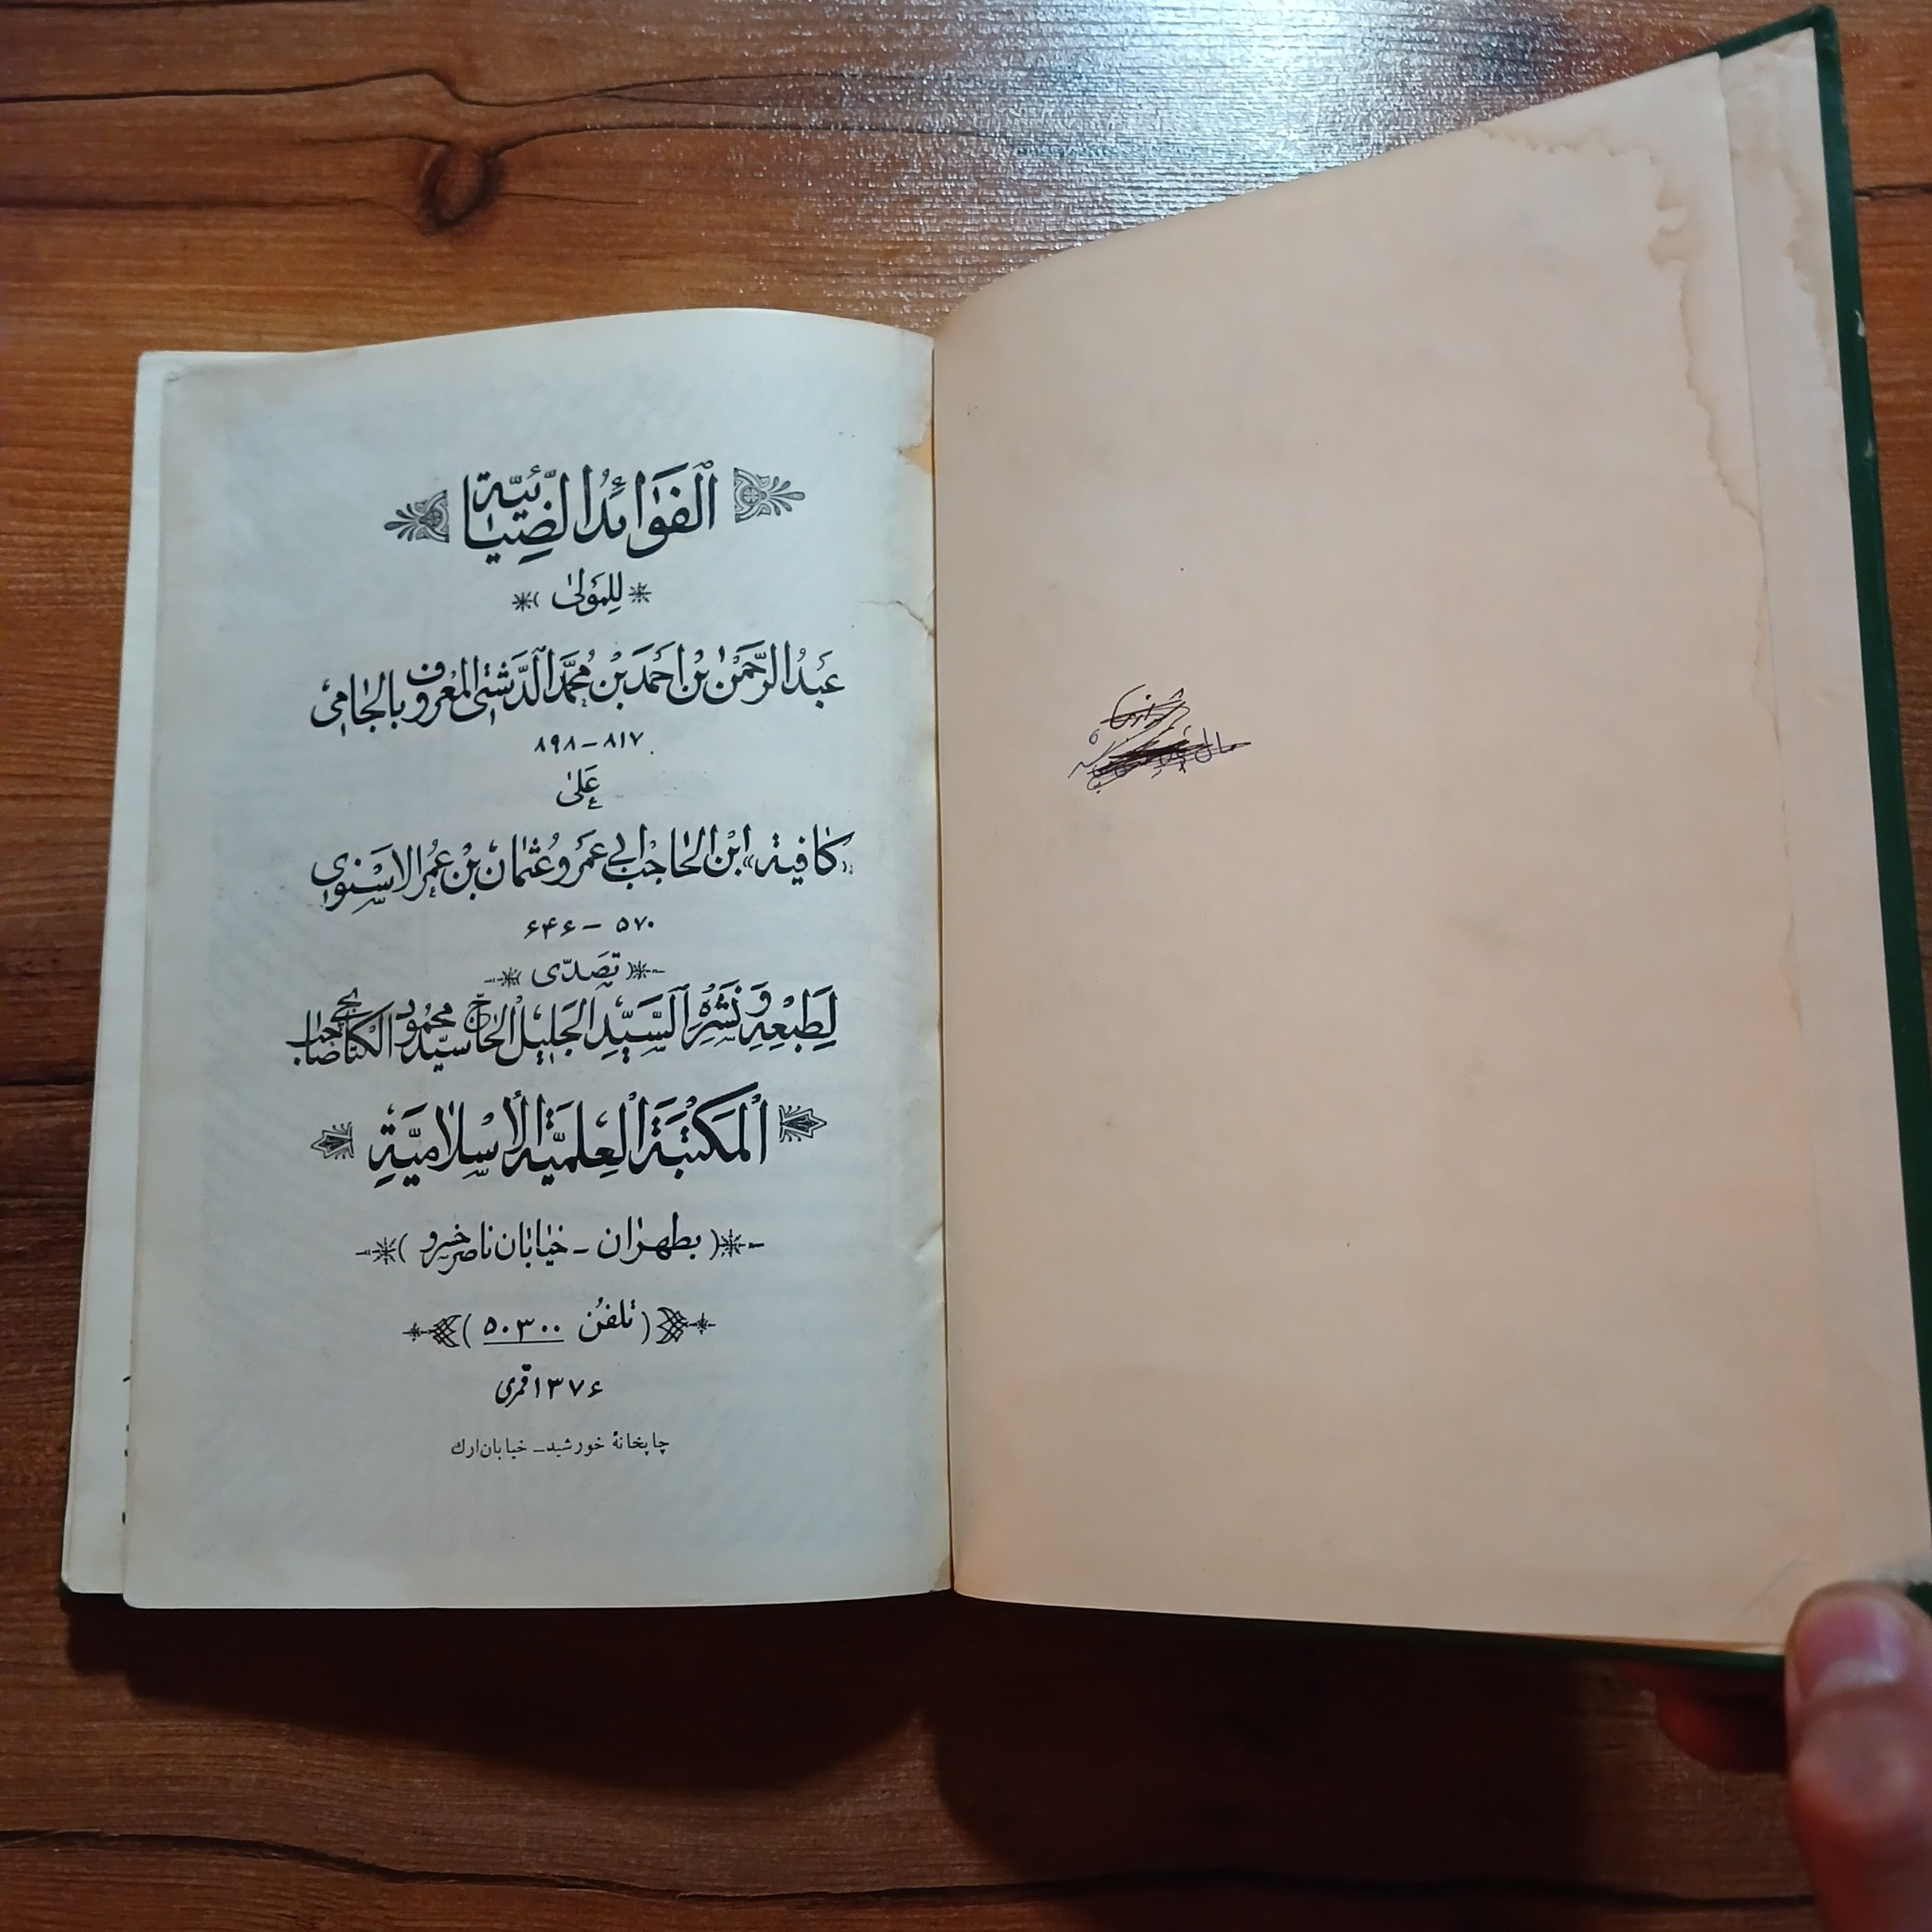 الفَوٰائِدُ الضِّيٰائِيَّة
لِلْمَوْلىٰ
عَبْدُ الرَّحْمٰنِ بْنِ اَحْمَدَ بْنِ مُحَمَّدٍ الدَّشْتىِ الْمَعْرُوفِ بِالْجٰامي
۸۱۷ - ۸۹۸
عَلىٰ
«كٰافية» ابْنِ الحٰاجْبِ ابي عَمْرو عُثمٰانَ بْنِ عُمَر الاَسْنَوِي
۵۷۰ - ۶۴۶
(تَصَدّى)
لِطَبْعِهِ وَ نَشْرِهِ السَّيِّدِ الجَلِيلِ الْحَاجّ سيّد محمُود الكتٰابچى صٰاحب
اَلْمَكْتَبَةِ العِلْمِيَّةِ الْاِسْلٰامِيَّةِ
(بطهرٰان - خيٰابٰان ناصر خسرو)
(تلفُن ۵۰۳۰۰)
۱۳۷۶ قمرى
چاپخانهٔ خورشید - خیابان ارك